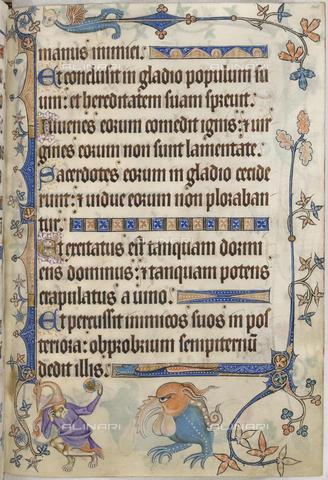 manus inimici.
Et conclusit in gladio populum su
um: et hereditatem suam sprevit.
Iuvenes eorum comedit ignis: ⁊ vir
gines eorum non sunt lamentate.
Sacerdotes eorum in gladio cecide
runt: ⁊ vidue eorum non ploraban
tur.
Et excitatus est tanquam dormi
ens dominus: ⁊ tanquam potens
crapulatus a vino.
Et percussit inimicos suos in pos
teriora: obprobrium sempiternū
dedit illis.
ALINARI
ALINARI
ALINARI
ALINARI